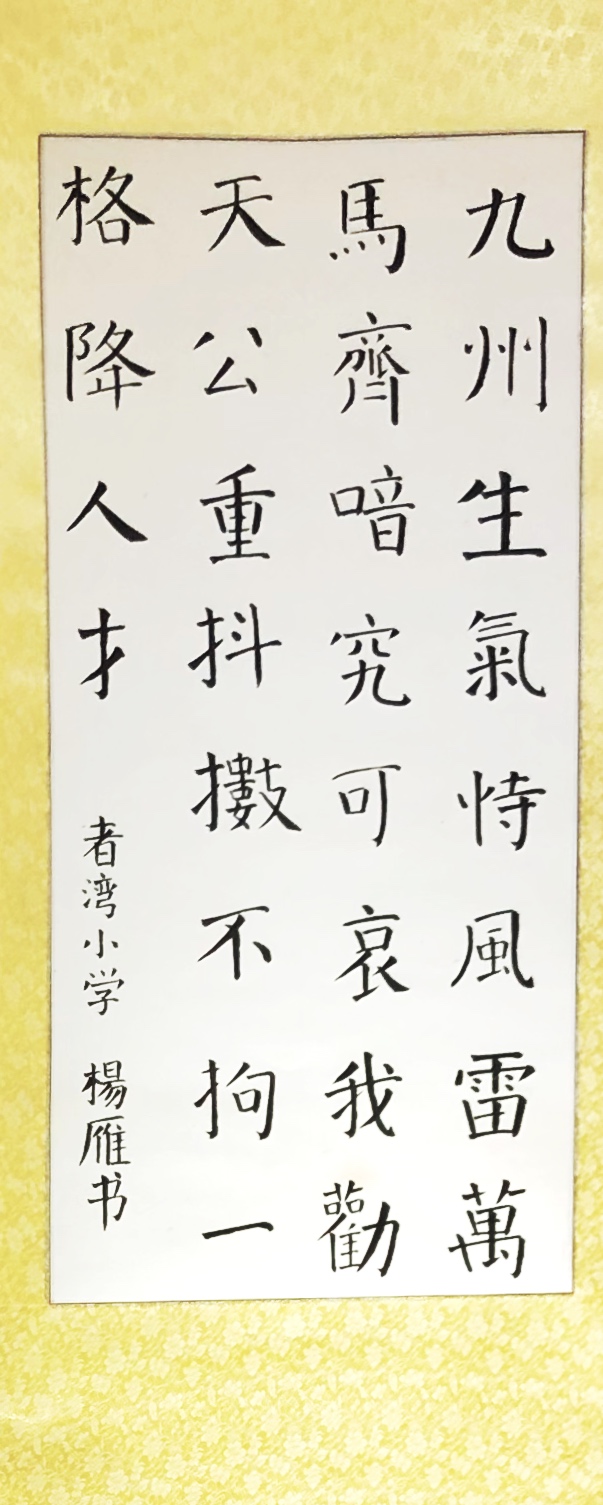 九州生氣恃風雷萬
馬齊喑究可哀我勸
天公重抖擻不拘一
格降人才
者湾小学 楊雁书